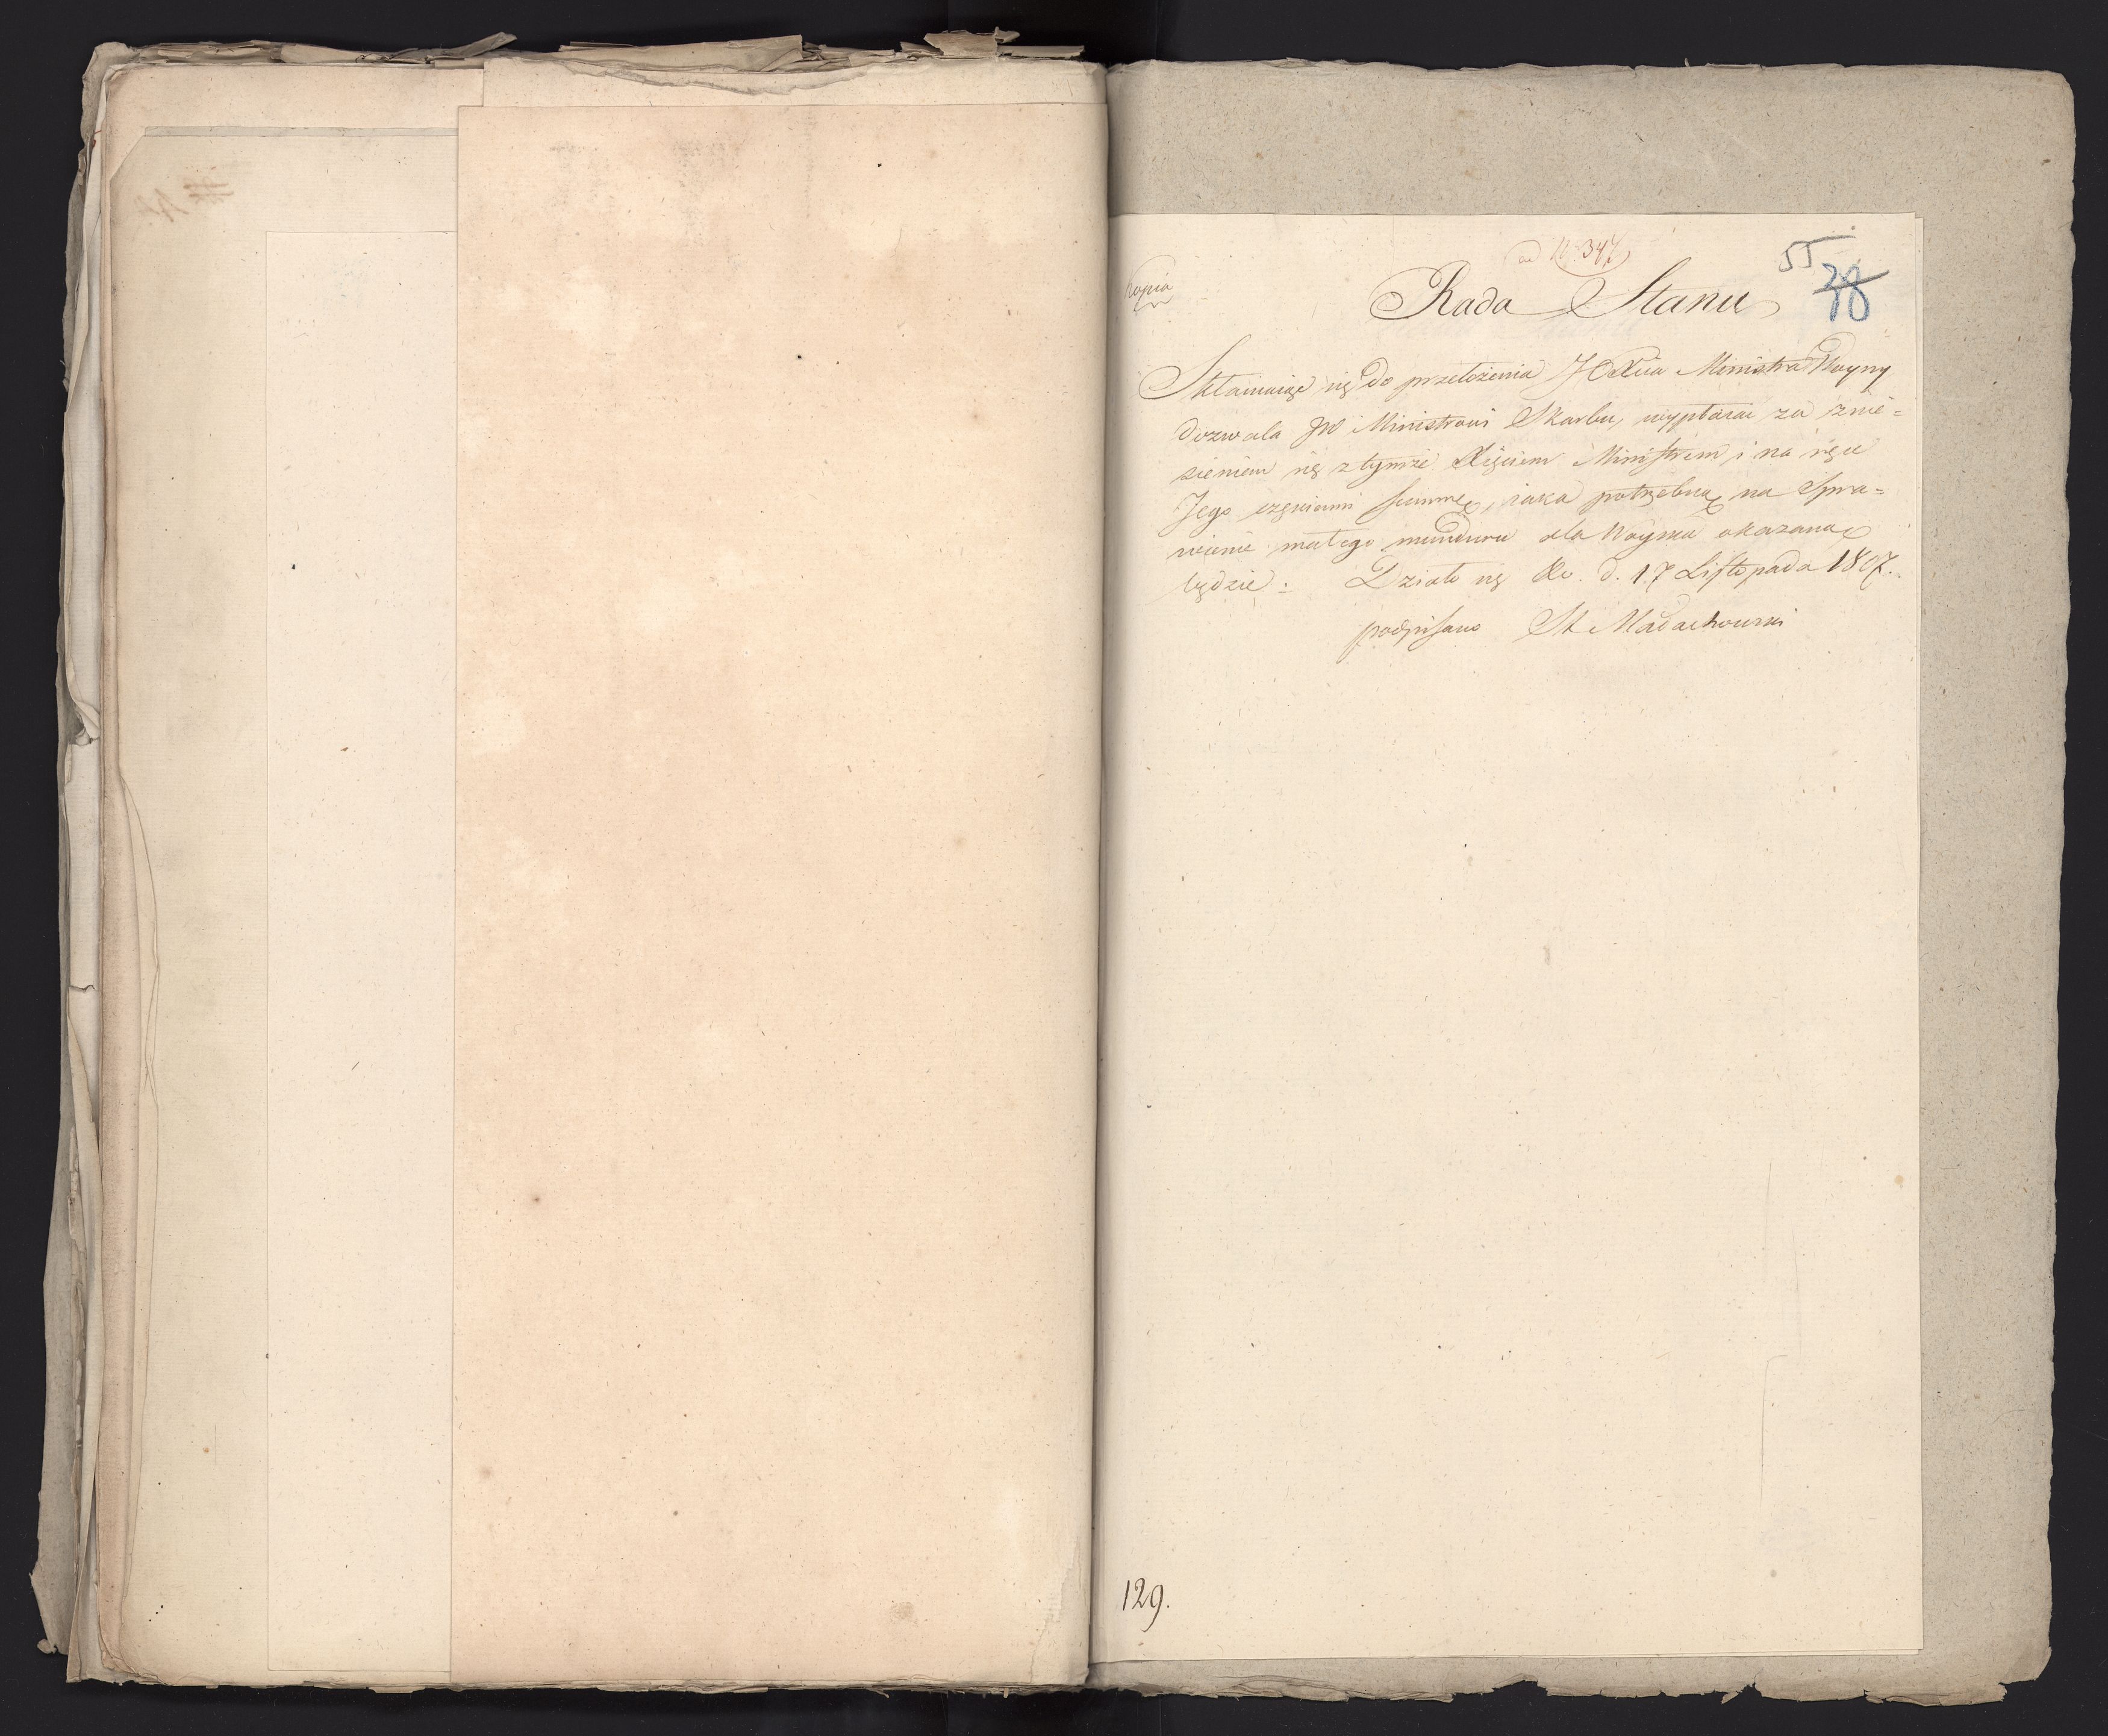 ad N 347
55
38
Kopia
Rada Stanu
Skłaniaiąc się do przełożenia JOXcia Ministra Woyny
dozwala JW Ministrowi Skarbu, wypłacać za znie=
sieniem się z tymże Xięciem Ministrem i na ręce
Jego częściami summę, iaka potrzebną na Spra=
wienie małego munduru dla Woyska okazaną
będzie. Działo się Ro. d. 17 Listopada 1807.
podpisano St Małachowski
129.